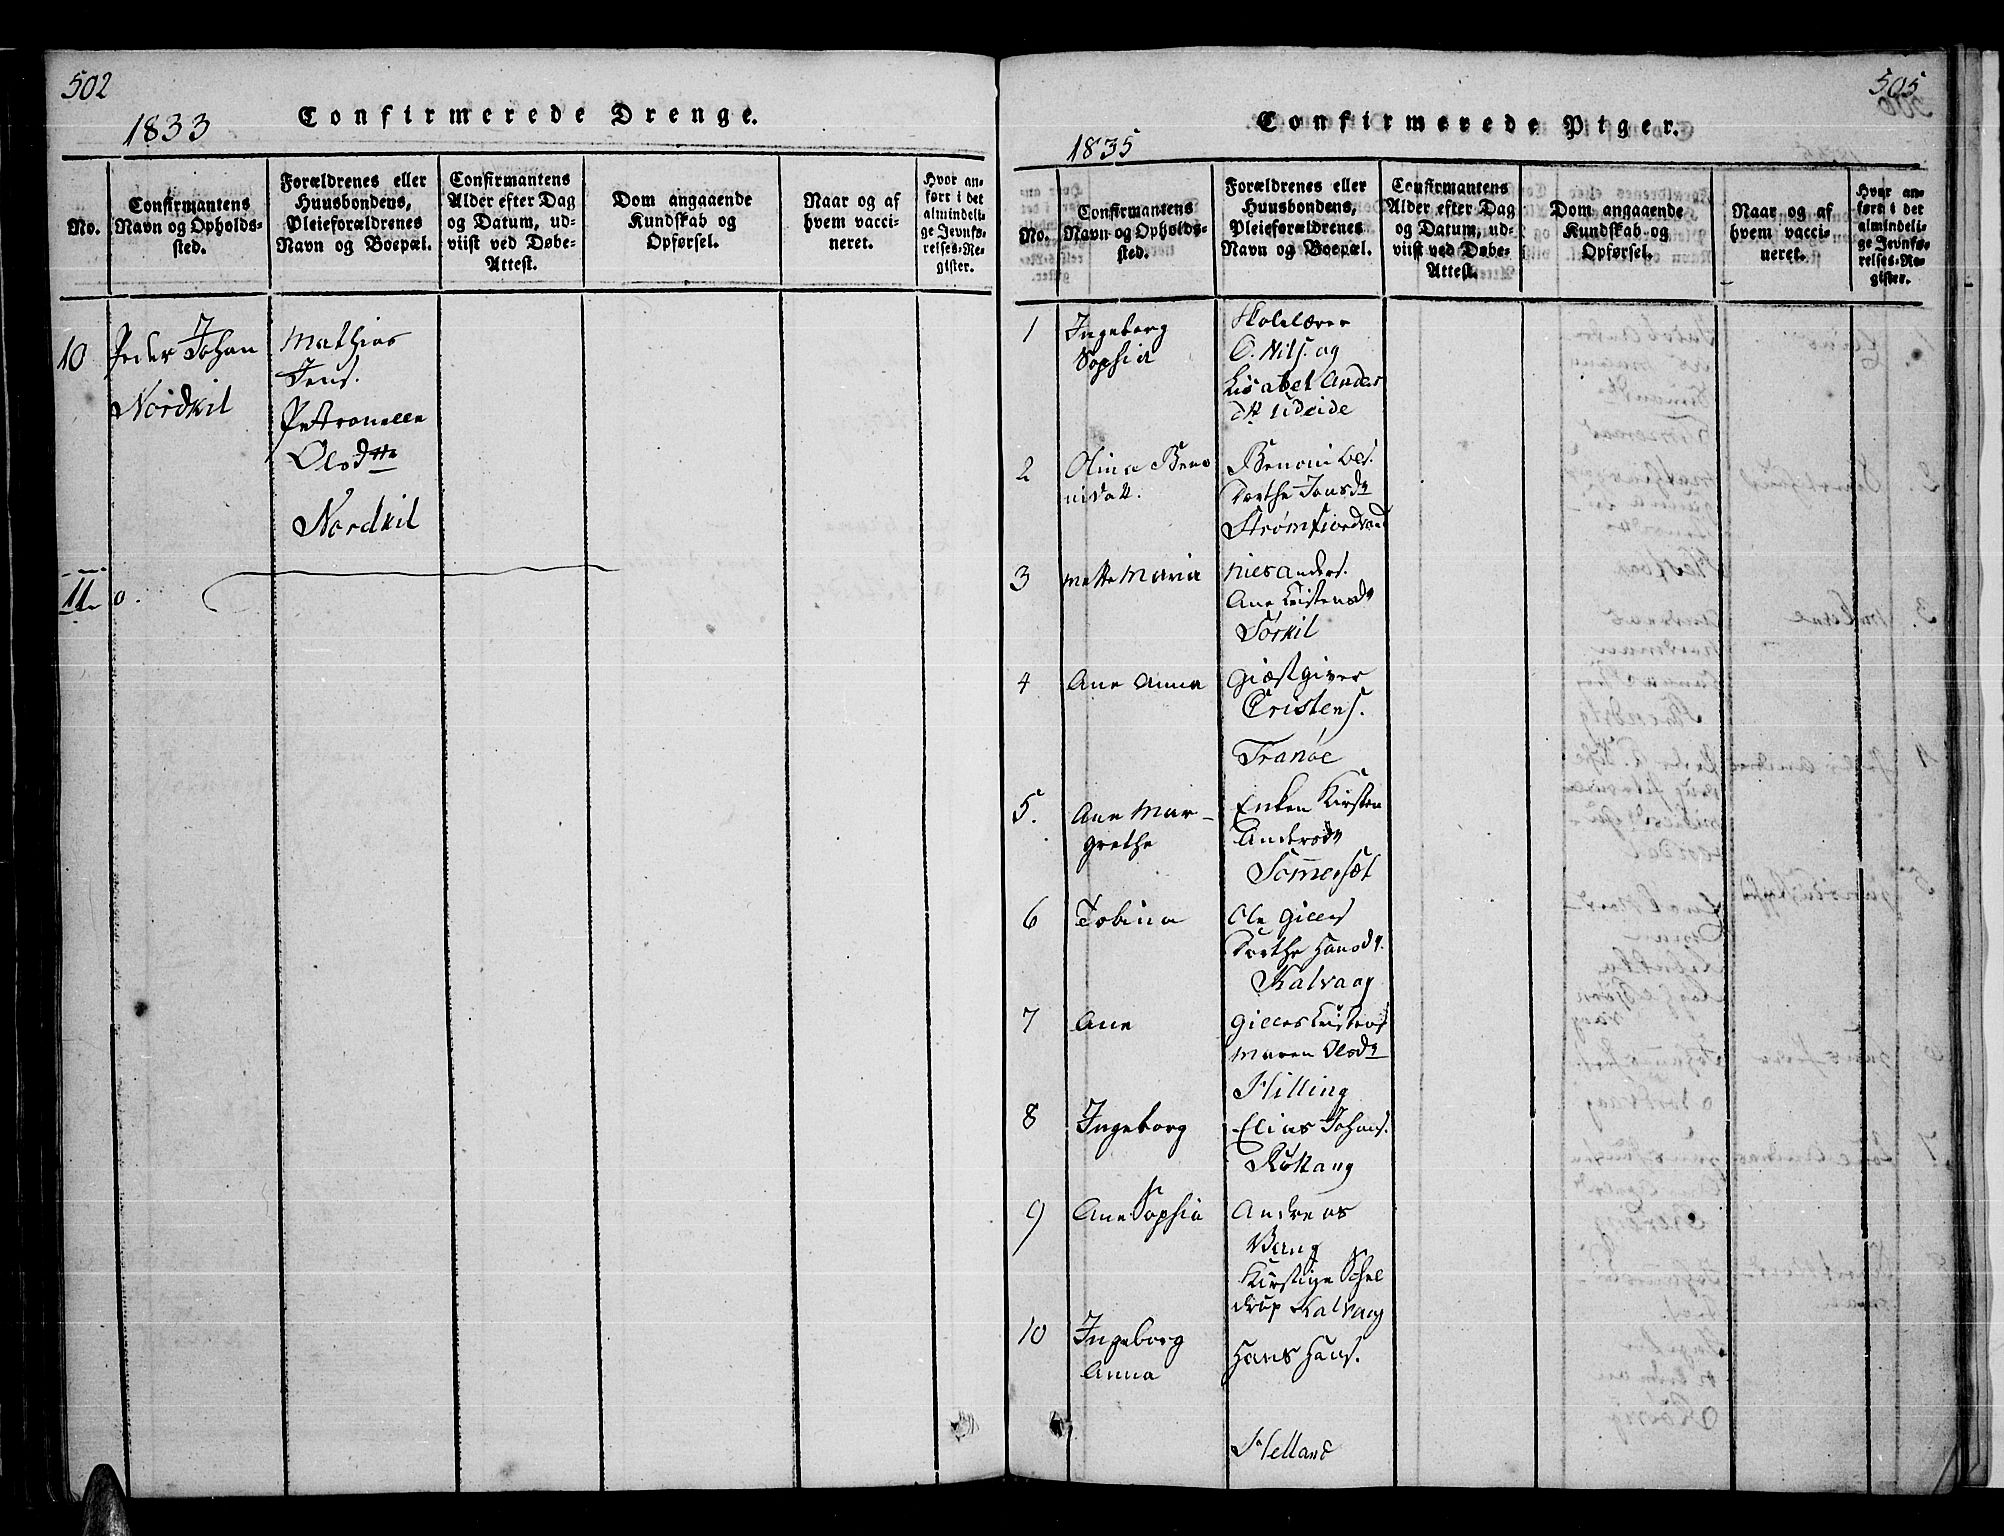 502
1833
Confirmerede Drenge.
No.
Confirmantens
Navn og Opholds-
sted.
Forældrenes eller
Huusbondens,
Pleieforældrenes
Navn og Boepæl.
Confirmantens
Alder efter Dag
og Datum, ud-
viist ved Døbe-
Attest.
Dom angaaende
Kundskab og
Opførsel.
Naar og af
hvem vacci-
neret.
Hvor an-
ført i det
almindeli-
ge Jevnfø-
relses-Re-
gister.
10
Peder Johan
Nordkil
Mathias
Jens.
Petronelle
Olsdtr
Nordkil
11
505
1835
Confirmerede Piger.
No.
Confirmantens
Navn og Opholds-
sted.
Forældrenes eller
Huusbondens,
Pleieforældrenes
Navn og Boepæl.
Confirmantens
Alder efter Dag
og Datum, ud-
viist ved Døbe-
Attest.
Dom angaaende
Kundskab og
Opførsel.
Naar og af
hvem vacci-
neret.
Hvor an-
ført i det
almindeli-
ge Jevnfø-
relses-Re-
gister.
1
Ingeborg
Sophia
Skolelærer
O. Nils. og
Lisabet Anders
dtr Udeide
2
Olina Beno
nisdtt.
Benoni Ols.
Dorthe Jonsdr
Strømfiordvand
3
Mette Maria
Niels Anders.
Ane Kristensdr
Sørkil
4
Ane Anna
Giæstgiver
Cristens.
Tranøe
5.
Ane Mar-
grethe
Enken Kirsten
Andersdr
Sommerset
6
Tobina
Ole Gilles
Dorthe Hansdr.
Kalvaag
7
Ane
Gilles Kristens
Maren Olsdr
Hilling
8
Ingeborg
Elias Johans.
9
Ane Sophia
Andreas
Berug
Kirstine Schel
drup Kalvaag
10
Ingeborg
Anna
Hans Hans.
Helland